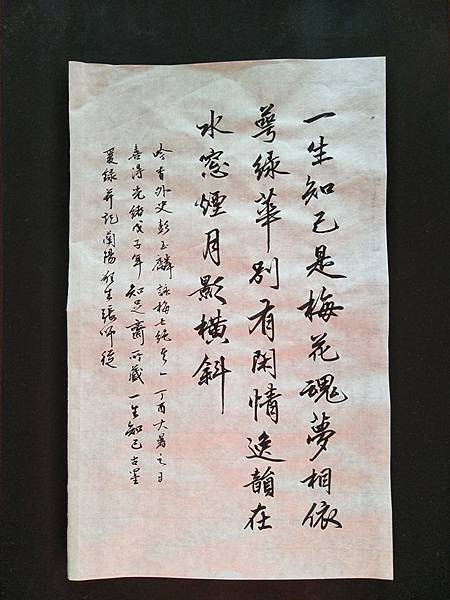 一生知己是梅花魂夢相依
萼綠華別有閑情逸韻在
水窓煙月影橫斜
吟香外史彭玉麟詠梅七絕之一丁酉大暑之日
喜得光緒戊子年知足齋所藏一生知己古墨
爰錄并記蘭陽生張師從